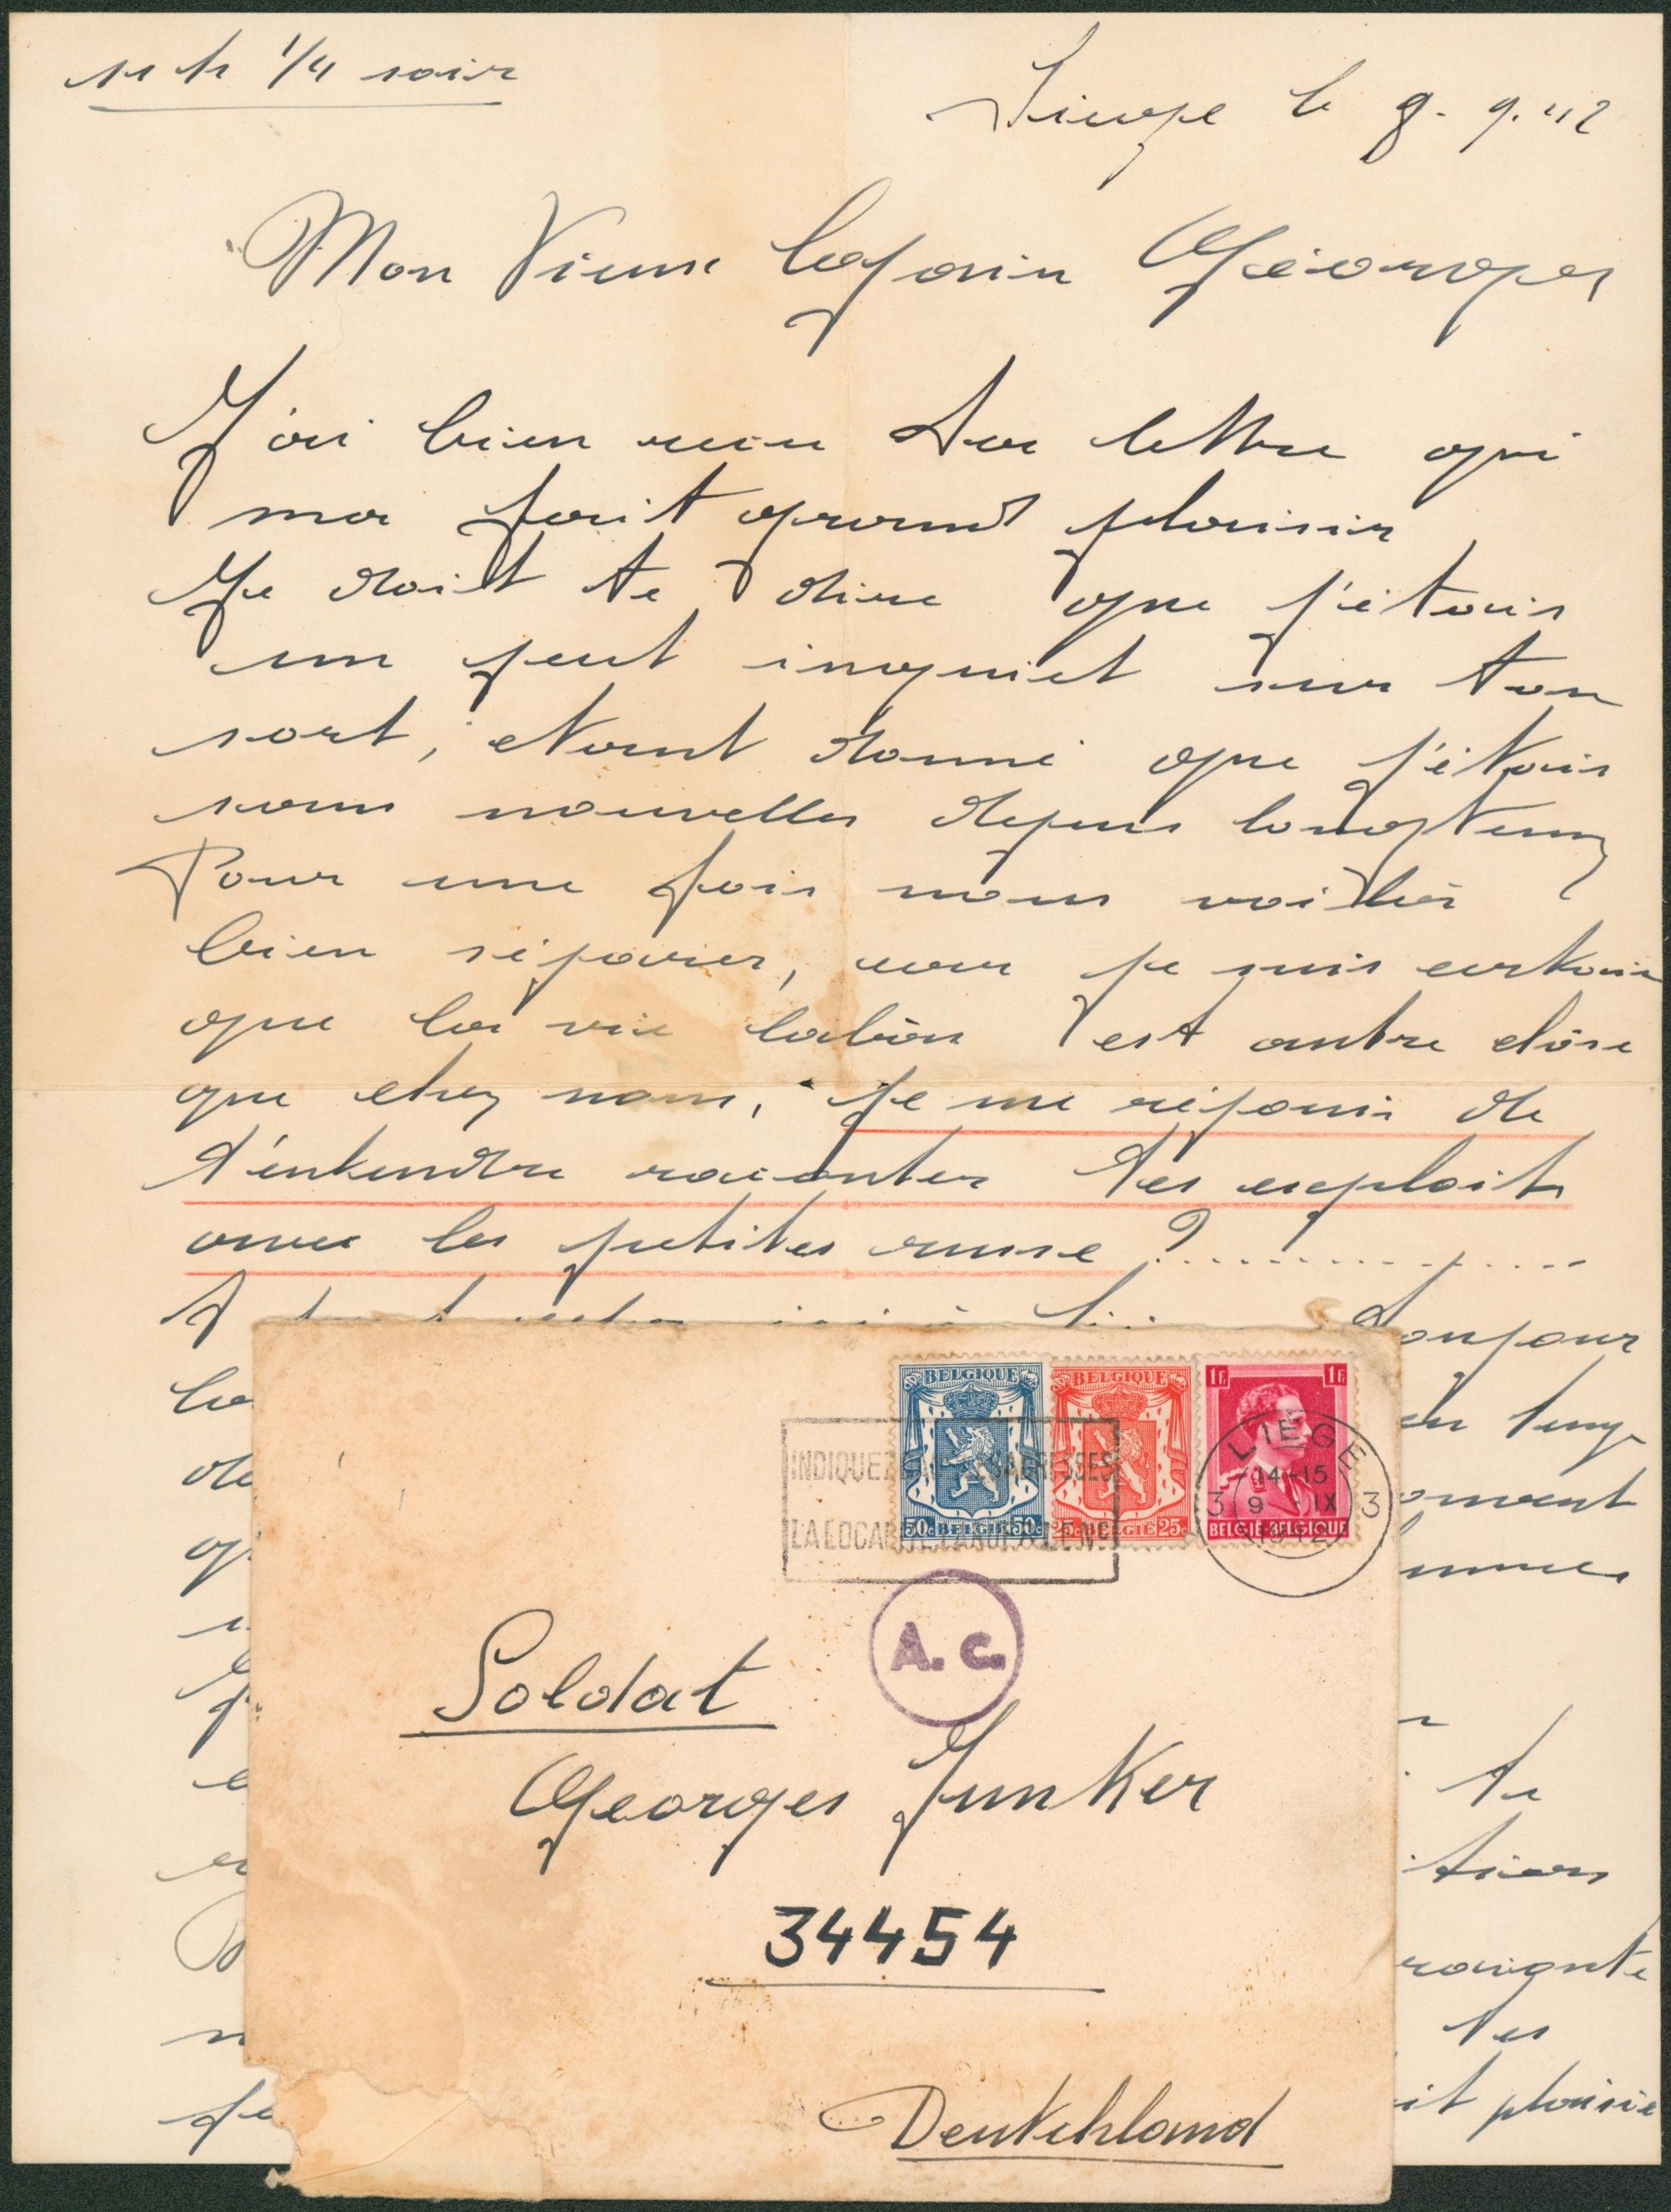 11 h 1/4 soir
Liege le 8. 9. 42
Mon Vieux Copain Géorges
J'ai bien recu ta lettre qui
ma fait grand plaisir
Je doit te dire que j'étais
un peut inquiet sur ton
sort, etant donné que j'étais
sans nouvelles depuis longtemps
Pour une fois nous voilà
bien séparer, car je suis certain
que la vie labàs est autre chôse
que chez nous, je me réjouis de
t'entendre raconter tes exploits
avec les petites russe ?...............
toujour
la
de
moment
te
tes
plaisir
BELGIQUE BELGIQUE 1F 1F
50c BELGIË 50c 25c BELGIË 25c BELGIË-BELGIQUE
INDIQUEZ
LA LOCALITÉ LA RUE ET LE N°
LIÈGE
14-15
3 9 - IX 3
1942
A.C.
Soldat
Georges Junker
34454
Deutchland